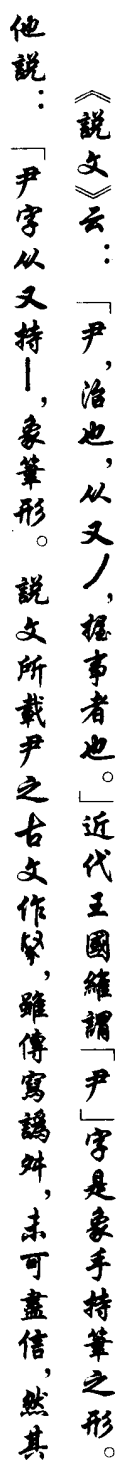 《說文》云：「尹，治也，从又丿，握事者也。」近代王國維謂「尹」字是象手持筆之形。
他說：「尹字从又持丨，象筆形。說文所載尹之古文作𢁥，雖傳寫譌舛，未可盡信，然其